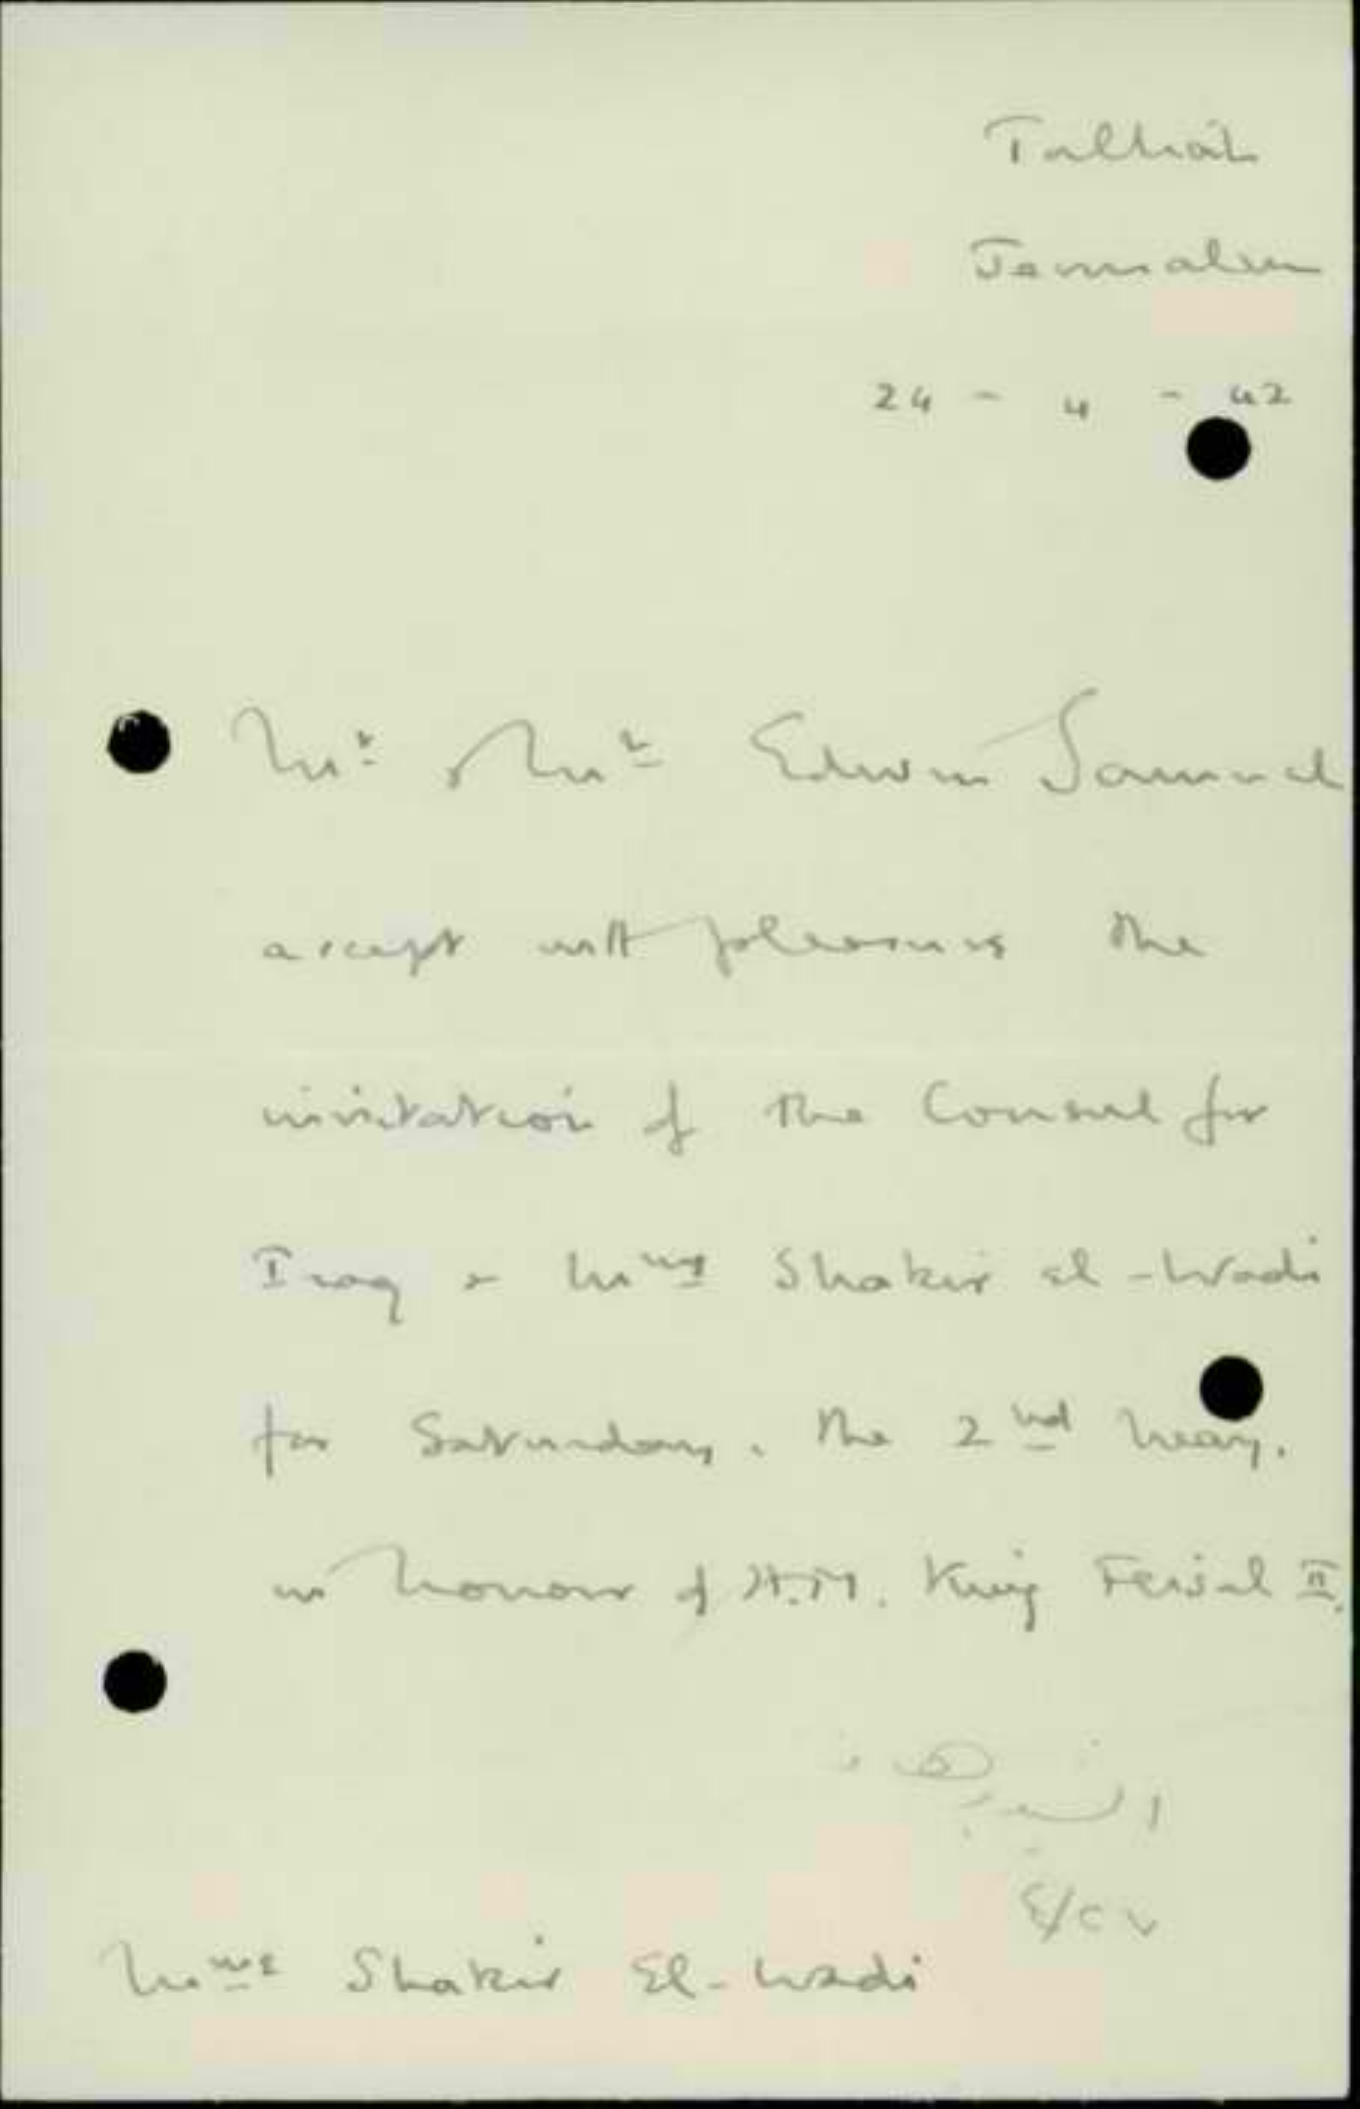 Talbiah
Jerusalem
24 - 4 - 42
Mr & Mrs Edwin Samuel
accept with pleasure the
invitation of the Consul for
Iraq & Mme Shakir el-Wadi
for Saturday, the 2nd May,
in honour of H.M. King Feisal II.
٤/٢٧
Mme Shakir El-Wadi